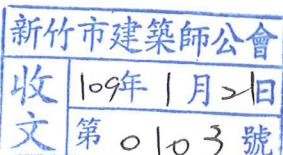 新竹市建築師公會
收文
109年1月21日
第0103號